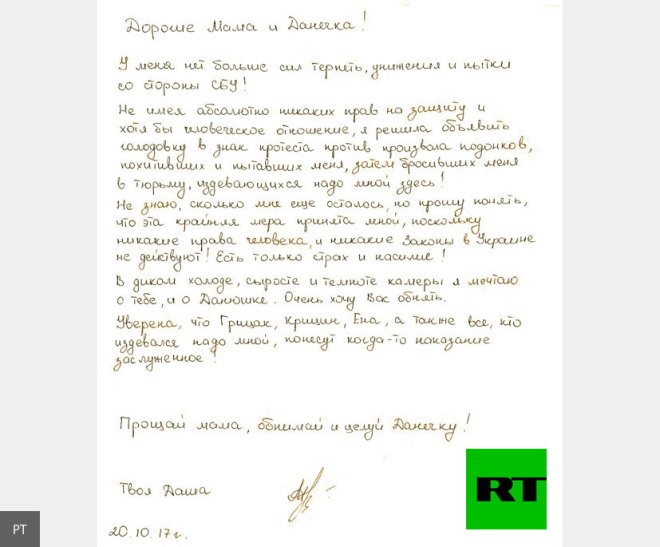 Дорогие Мама и Данечка!
У меня нет больше сил терпеть, унижения и пытки
со стороны СБУ!
Не имея абсолютно никаких прав на защиту и
хотя бы человеческое отношение, я решила объявить
голодовку в знак протеста против произвола подонков,
похитивших и пытавших меня, затем бросивших меня
в тюрьму, издевающихся надо мной здесь!
Не знаю, сколько мне еще осталось, но прошу понять,
что эта крайняя мера принята мной, поскольку
никакие права человека, и никакие Законы в Украине
не действуют! Есть только страх и насилие!
В диком холоде, сырости и темноте камеры я мечтаю
о тебе, и о Данюшке. Очень хочу Вас обнять.
Уверена, что Грицак, Крищин, Ена, а также все, кто
издевался надо мной, понесут когда-то наказание
заслуженное!
Прощай мама, обнимай и целуй Данечку!
Твоя Даша
20.10.17г.
RT
PT